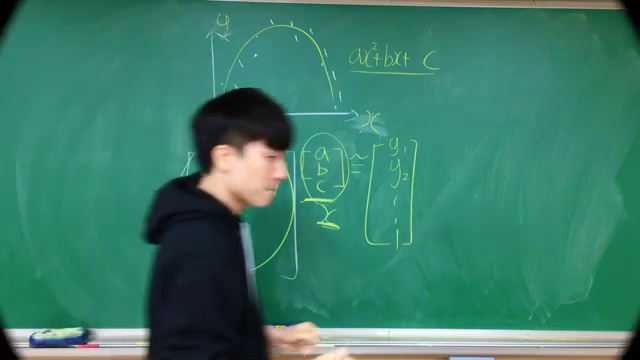 y
ax²+bx+ c
x
[a
b
c] ≅ [y₁
y₂
⋮
]
x